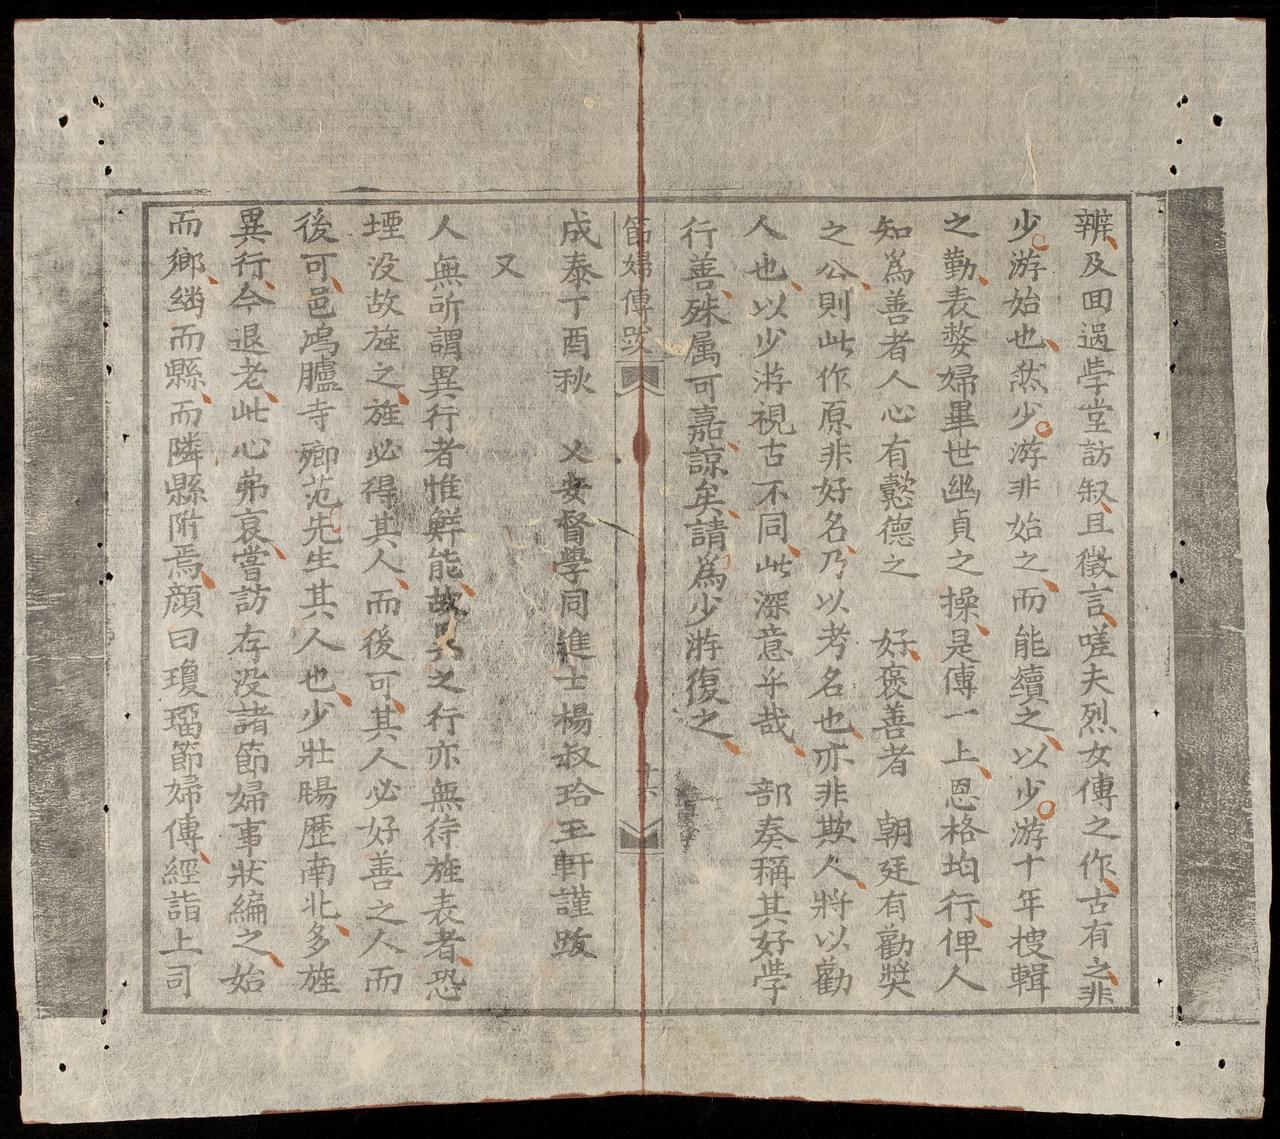 辨及回過學堂訪叙且徵言嗟夫烈女傳之作古有之非
少游始也然少游非始之而能續之以少游十年搜輯
之勤表嫠婦畢世幽貞之操是傳一上恩格均行俾人
知為善者人心有懿德之 好褒善者 朝廷有勸奬
之公則此作原非好名乃以考名也亦非欺人將以勸
人也以少游視古不同此深意乎哉 部奏稱其好學
行善殊属可嘉諒矣請為少游復之
節婦傳跋
十六
成泰丁酉秋 乂安督學同進士楊叔珨玉軒謹跋
又
人無所謂異行者惟鮮能故異之行亦無待旌表者恐
堙没故旌之旌必得其人而後可其人必好善之人而
後可邑鴻臚寺卿范先生其人也少壯賜歷南北多旌
異行今退老此心弗衰嘗訪存没諸節婦事狀編之始
而鄉繼而縣而隣縣附焉顔曰瓊瑠節婦傳經詣上司